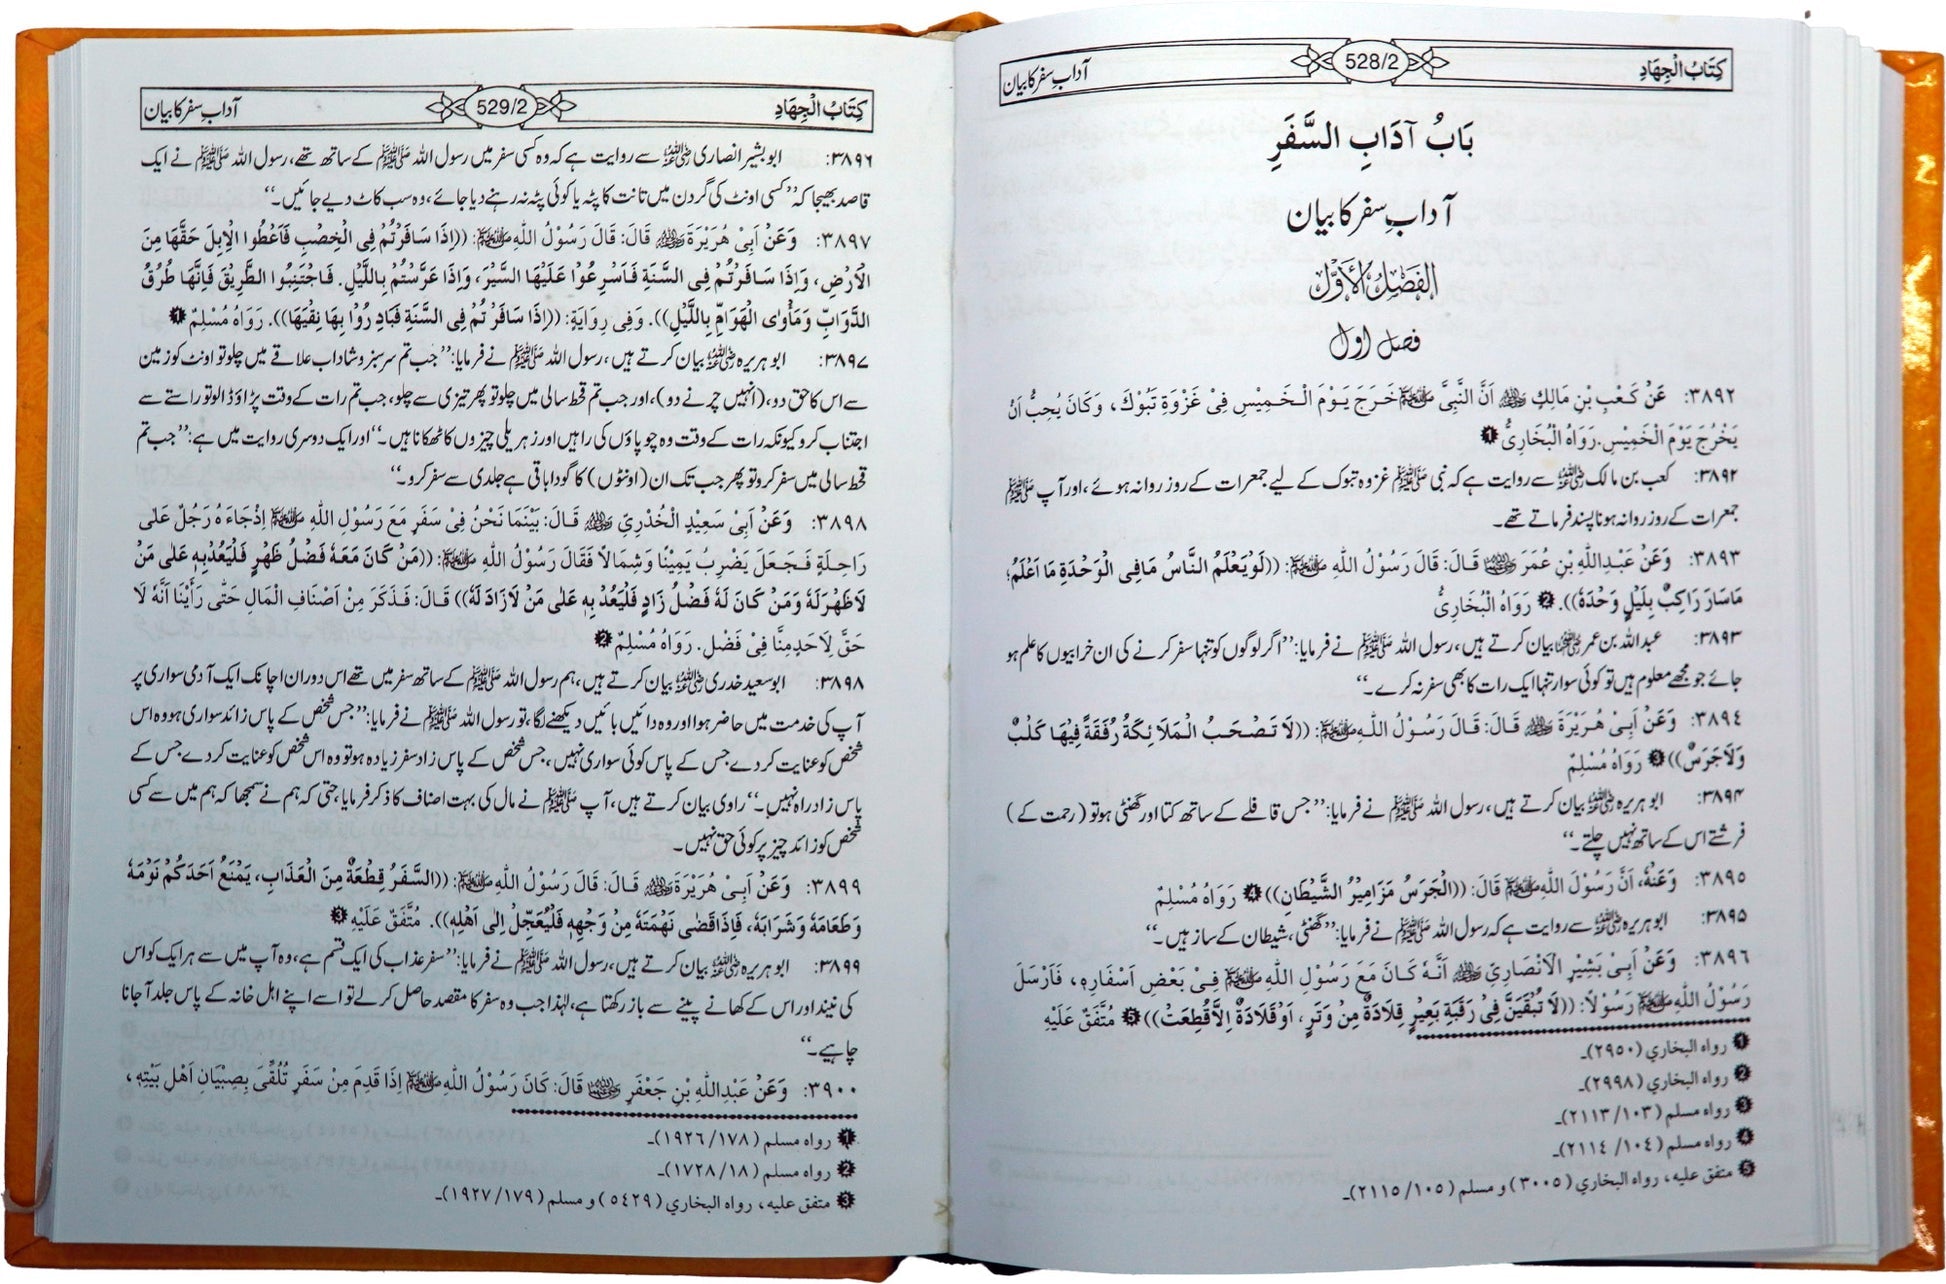 كِتَابُ الْجِهَادِ 528/2 آدابِ سفر کا بیان
بَابُ آدَابِ السَّفَرِ
آدابِ سفر کا بیان
الْفَصْلُ الْأَوَّلُ
فصل اول
٣٨٩٢: عَنْ كَعْبِ بْنِ مَالِكٍ رضي الله عنه أَنَّ النَّبِيَّ ﷺ خَرَجَ يَوْمَ الْخَمِيْسِ فِيْ غَزْوَةِ تَبُوْكَ، وَكَانَ يُحِبُّ اَنْ
يَخْرُجَ يَوْمَ الْخَمِيْسِ. رَوَاهُ الْبُخَارِيُّ ❶
۳۸۹۲: کعب بن مالک رضی اللہ عنہ سے روایت ہے کہ نبی ﷺ غزوہ تبوک کے لیے جمعرات کے روز روانہ ہوئے، اور آپ ﷺ
جمعرات کے روز روانہ ہونا پسند فرماتے تھے۔
٣٨٩٣: وَعَنْ عَبْدِاللّٰهِ بْنِ عُمَرَ رضي الله عنهما قَالَ: قَالَ رَسُوْلُ اللّٰهِ ﷺ: ((لَوْيَعْلَمُ النَّاسُ مَافِى الْوَحْدَةِ مَا اَعْلَمُ؛
مَاسَارَ رَاكِبٌ بِلَيْلٍ وَحْدَهٗ)). ❷ رَوَاهُ الْبُخَارِىُّ
۳۸۹۳: عبداللہ بن عمر رضی اللہ عنہما بیان کرتے ہیں، رسول اللہ ﷺ نے فرمایا: ’’اگر لوگوں کو تنہا سفر کرنے کی ان خرابیوں کا علم ہو
جائے جو مجھے معلوم ہیں تو کوئی سوار تنہا ایک رات کا بھی سفر نہ کرے۔‘‘
٣٨٩٤: وَعَنْ اَبِىْ هُرَيْرَةَ رضي الله عنه قَالَ: قَالَ رَسُوْلُ اللّٰهِ ﷺ: ((لَا تَصْحَبُ الْمَلَائِكَةُ رُفْقَةً فِيْهَا كَلْبٌ
وَلَاجَرَسٌ)) ❸ رَوَاهُ مُسْلِمٌ
۳۸۹۴: ابو ہریرہ رضی اللہ عنہ بیان کرتے ہیں، رسول اللہ ﷺ نے فرمایا: ’’جس قافلے کے ساتھ کتا اور گھنٹی ہو تو (رحمت کے)
فرشتے اس کے ساتھ نہیں چلتے۔‘‘
٣٨٩٥: وَعَنْهُ، اَنَّ رَسُوْلَ اللّٰهِ ﷺ قَالَ: ((الْجَرَسُ مَزَامِيْرُ الشَّيْطَانِ)) ❹ رَوَاهُ مُسْلِمٌ
۳۸۹۵: ابو ہریرہ رضی اللہ عنہ سے روایت ہے کہ رسول اللہ ﷺ نے فرمایا: ’’گھنٹی، شیطان کے ساز ہیں۔‘‘
٣٨٩٦: وَعَنْ اَبِىْ بَشِيْرِ الْاَنْصَارِيِّ رضي الله عنه اَنَّهٗ كَانَ مَعَ رَسُوْلِ اللّٰهِ ﷺ فِىْ بَعْضِ اَسْفَارِهٖ، فَاَرْسَلَ
رَسُوْلُ اللّٰهِ ﷺ رَسُوْلًا: ((لَا تُبْقَيَنَّ فِىْ رَقَبَةِ بَعِيْرٍ قِلَادَةٌ مِنْ وَتَرٍ، اَوْقَلَادَةٌ اِلَّاقُطِعَتْ)) ❺ مُتَّفَقٌ عَلَيْهِ
❶ رواه البخاري (٢٩٥٠)۔
❷ رواه البخاري (٢٩٩٨)۔
❸ رواه مسلم (١٠٣/ ٢١١٣)۔
❹ رواه مسلم (١٠٤/ ٢١١٤)۔
❺ متفق عليه، رواه البخاري (٣٠٠٥) و مسلم (١٠٥/ ٢١١٥)۔
كِتَابُ الْجِهَادِ 529/2 آدابِ سفر کا بیان
۳۸۹۶: ابو بشیر انصاری رضی اللہ عنہ سے روایت ہے کہ وہ کسی سفر میں رسول اللہ ﷺ کے ساتھ تھے، رسول اللہ ﷺ نے ایک
قاصد بھیجا کہ ’’کسی اونٹ کی گردن میں تانت کا پٹہ یا کوئی پٹہ نہ رہنے دیا جائے، وہ سب کاٹ دیے جائیں۔‘‘
٣٨٩٧: وَعَنْ اَبِىْ هُرَيْرَةَ رضي الله عنه قَالَ: قَالَ رَسُوْلُ اللّٰهِ ﷺ: ((اِذَا سَافَرْتُمْ فِى الْخِصْبِ فَاَعْطُوا الْاِبِلَ حَقَّهَا مِنَ
الْاَرْضِ، وَاِذَا سَافَرْتُمْ فِى السَّنَةِ فَاَسْرِعُوْا عَلَيْهَا السَّيْرَ، وَاِذَا عَرَّسْتُمْ بِاللَّيْلِ. فَاجْتَنِبُوا الطَّرِيْقَ فَاِنَّهَا طُرُقُ
الدَّوَابِّ وَمَأْوٰى الْهَوَامِّ بِاللَّيْلِ)). وَفِىْ رِوَايَةٍ: ((اِذَا سَافَرْتُمْ فِى السَّنَةِ فَبَادِرُوْا بِهَا نِقْيَهَا)). رَوَاهُ مُسْلِمٌ ❶
۳۸۹۷: ابو ہریرہ رضی اللہ عنہ بیان کرتے ہیں، رسول اللہ ﷺ نے فرمایا: ’’جب تم سرسبز و شاداب علاقے میں چلو تو اونٹ کو زمین
سے اس کا حق دو، (انہیں چرنے دو)، اور جب تم قحط سالی میں چلو تو پھر تیزی سے چلو، جب تم رات کے وقت پڑاؤ ڈالو تو راستے سے
اجتناب کرو کیونکہ رات کے وقت وہ چوپاؤں کی راہیں اور زہریلی چیزوں کا ٹھکانا ہیں۔‘‘ اور ایک دوسری روایت میں ہے: ’’جب تم
قحط سالی میں سفر کرو تو پھر جب تک ان (اونٹوں) کا گودا باقی ہے جلدی سے سفر کرو۔‘‘
٣٨٩٨: وَعَنْ اَبِىْ سَعِيْدٍ الْخُدْرِيِّ رضي الله عنه قَالَ: بَيْنَمَا نَحْنُ فِىْ سَفَرٍ مَعَ رَسُوْلِ اللّٰهِ ﷺ اِذْجَاءَهُ رَجُلٌ عَلٰى
رَاحِلَةٍ فَجَعَلَ يَضْرِبُ يَمِيْنًا وَشِمَالًا فَقَالَ رَسُوْلُ اللّٰهِ ﷺ: ((مَنْ كَانَ مَعَهٗ فَضْلُ ظَهْرٍ فَلْيَعُدْبِهٖ عَلٰى مَنْ
لَاظَهْرَلَهٗ وَمَنْ كَانَ لَهٗ فَضْلُ زَادٍ فَلْيَعُدْ بِهٖ عَلٰى مَنْ لَازَادَ لَهٗ)) قَالَ: فَذَكَرَ مِنْ اَصْنَافِ الْمَالِ حَتّٰى رَأَيْنَا اَنَّهٗ لَا
حَقَّ لِاَحَدٍمِنَّا فِىْ فَضْلٍ. رَوَاهُ مُسْلِمٌ ❷
۳۸۹۸: ابوسعید خدری رضی اللہ عنہ بیان کرتے ہیں، ہم رسول اللہ ﷺ کے ساتھ سفر میں تھے اس دوران اچانک ایک آدمی سواری پر
آپ کی خدمت میں حاضر ہوا اور وہ دائیں بائیں دیکھنے لگا، تو رسول اللہ ﷺ نے فرمایا: ’’جس شخص کے پاس زائد سواری ہو وہ اس
شخص کو عنایت کر دے جس کے پاس کوئی سواری نہیں، جس شخص کے پاس زادِ سفر زیادہ ہو تو وہ اس شخص کو عنایت کر دے جس کے
پاس زادِ راہ نہیں۔‘‘ راوی بیان کرتے ہیں، آپ ﷺ نے مال کی بہت اصناف کا ذکر فرمایا، حتیٰ کہ ہم نے سمجھا کہ ہم میں سے کسی
شخص کو زائد چیز پر کوئی حق نہیں۔
٣٨٩٩: وَعَنْ اَبِىْ هُرَيْرَةَ رضي الله عنه قَالَ: قَالَ رَسُوْلُ اللّٰهِ ﷺ: ((السَّفَرُ قِطْعَةٌ مِنَ الْعَذَابِ، يَمْنَعُ اَحَدَكُمْ نَوْمَهٗ
وَطَعَامَهٗ وَشَرَابَهٗ، فَاِذَاقَضٰى نَهْمَتَهٗ مِنْ وَجْهِهٖ فَلْيُعَجِّلْ اِلٰى اَهْلِهٖ)). مُتَّفَقٌ عَلَيْهِ ❸
۳۸۹۹: ابو ہریرہ رضی اللہ عنہ بیان کرتے ہیں، رسول اللہ ﷺ نے فرمایا: ’’سفر عذاب کی ایک قسم ہے، وہ آپ میں سے ہر ایک کو اس
کی نیند اور اس کے کھانے پینے سے باز رکھتا ہے، لہٰذا جب وہ سفر کا مقصد حاصل کر لے تو اسے اپنے اہل خانہ کے پاس جلد آ جانا
چاہیے۔‘‘
٣٩٠٠: وَعَنْ عَبْدِاللّٰهِ بْنِ جَعْفَرٍ رضي الله عنه قَالَ: كَانَ رَسُوْلُ اللّٰهِ ﷺ اِذَا قَدِمَ مِنْ سَفَرٍ تُلُقِّىَ بِصِبْيَانِ اَهْلِ بَيْتِهٖ،
❶ رواه مسلم (١٧٨/ ١٩٢٦)۔
❷ رواه مسلم (١٨/ ١٧٢٨)۔
❸ متفق عليه، رواه البخاري (٥٤٢٩) و مسلم (١٧٩/ ١٩٢٧)۔